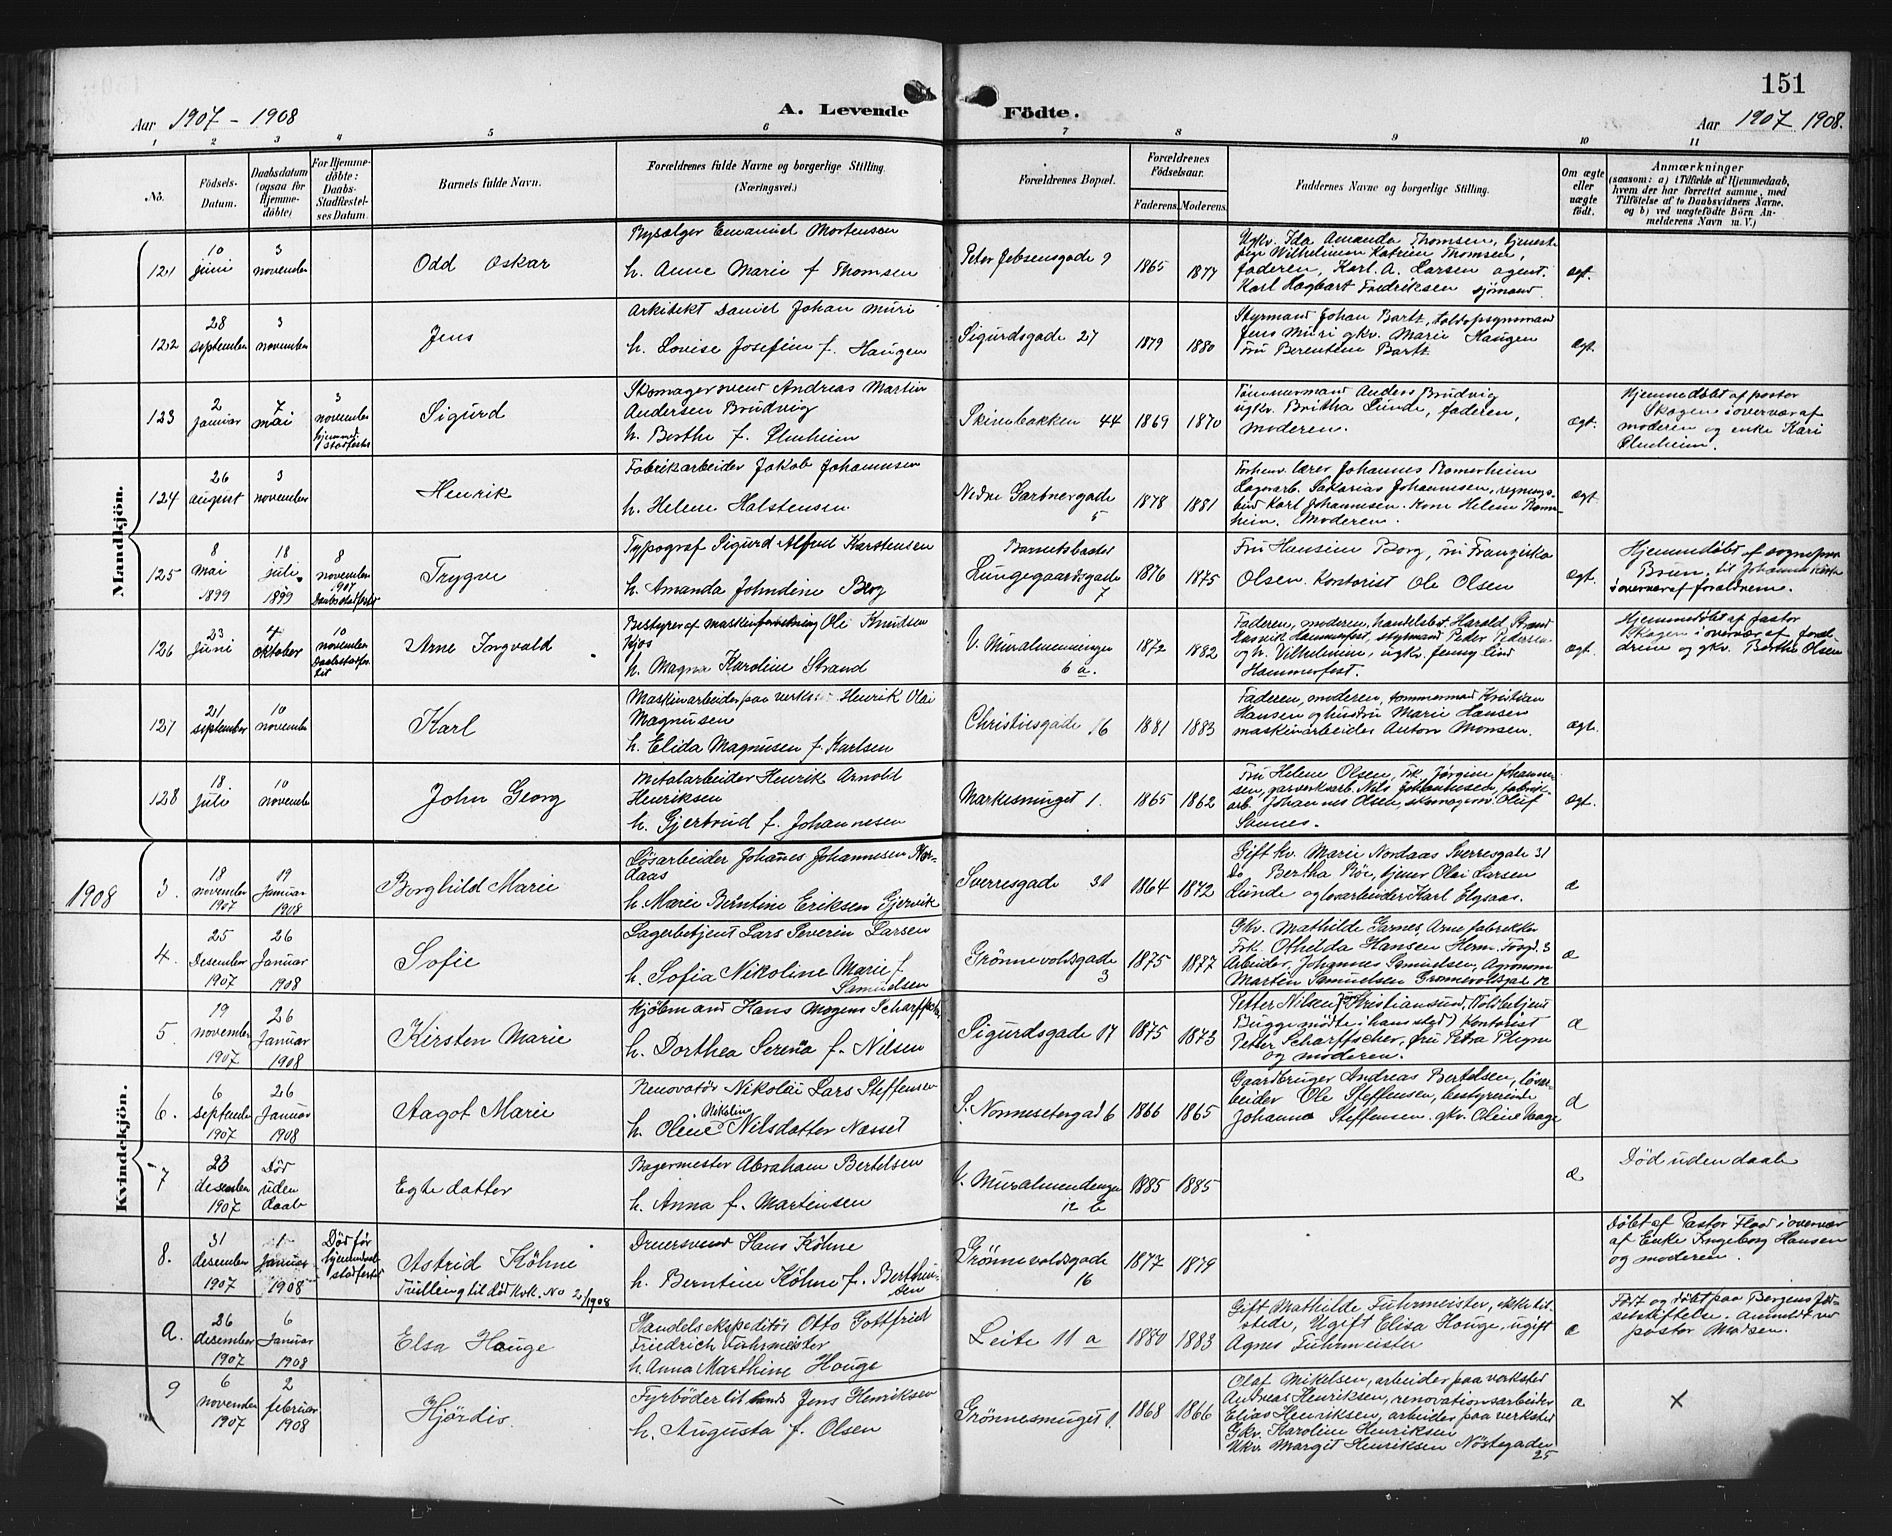 151
Aar 1907 - 1908
A. Levende Födte.
Aar 1907 1908.
1 2 3 4 5 6 7 8 9 10 11
No.
Födsels-Datum.
Daabsdatum (ogsaa for Hjemme-döbte)
For Hjemme-döbte: Daabs-Stadfæstel-ses Datum.
Barnets fulde Navn.
Forældrenes fulde Navne og borgerlige Stilling. (Næringsvei.)
Forældrenes Bopæl.
Forældrenes Födselsaar.
Faderens. Moderens.
Faddernes Navne og borgerlige Stilling.
Om ægte eller uægte födt.
Anmærkninger
(saasom: a) i Tilfælde af Hjemmedaab, hvem der har forrettet samme, med Tilföielse af to Daabsvidners Navne. og b) ved uægtefödte Börn An-melderens Navn m. V.)
Mandkjön.
121 10 juni 3 november Odd Oskar
Bysælger Emanuel Mortensen
h. Anne Marie f Thomsen
Peter Jebsensgade 9 1865 1877
Ugkv. Ida Amanda Thomsen, tjeneste
pige Vilhelmine Katrine Thomsen,
faderen, Karl. A. Larsen agent.
Karl Hagbart Fredriksen sjømand
ægt.
122 28 september 3 november Jens
Arkitekt Daniel Johan Muri
h. Lovise Josefine f. Haugen
Sigurdsgade 27 1879 1880
Styrmand Johan Bartz, toldopsynsmand
Jens Muri gkv. Marie Haugen
Fru Berentine Bartz
ægt.
123 2 Januar 7 mai 3 november hjemmd. stadfestet Sigurd
Skomagersvend Andreas Martin
Andersen Brudvig
h. Berthe f. Elnheim
Skivebakken 44 1869 1870
Tømmermand Anders Brudvig
ugkv. Britha Lunde, faderen,
moderen.
ægt.
Hjemmedøbt af pastor
Skagen i overvær af
moderen og enke Kari
Elnheim.
124 26 august 3 november Henrik
Fabrikarbeider Jakob Johannesen
h. Helene Halstensen
Nedre Gartnergade 5 1878 1881
Forhenv. lærer Johannes Romerheim
Lagerarb. Sakarias Johannesen,
Karl Johannesen. Kone Helene
Moderen.
ægt.
125 8 mai 1899 18 juli 1899 8 november 1907 Daabstadfestet Trygve
Typograf Sigurd Alfred Karstensen
h. Amanda Johndine Berg
Barnets bosted
Lungegaardsgade 7 1876 1875
Fru Hansine Borg, fru Franziska
Olsen. Kontorist Ole Olsen
ægt.
Hjemmedøbt af sogneprest
Brun, til Johanneskirke
i overvær af foraldrene.
126 23 juni 4 oktober 10 november Daabstadfestet Arne Torgvald
Bestyrer af maskinforretning Ole Knutsen
Kjos
h. Magna Karoline Strand
V. Muralmenningen 6 a. 1872 1882
Faderen, moderen, handelsbet. Harald Strand
Hammerfest, styrmand Peder Pedersen
og h. Vilhelmine, ugkv. Jenny Lind
Hammerfest.
ægt.
Hjemmedøbt af pastor
Skagen i overvær af foræl-
drene og gkv. Berthe Olsen
127 21 september 10 november Karl
Maskinarbeider paa verkst. Henrik Olai
Magnusen
h. Elida Magnusen f. Karlsen
Christiesgade 16 1881 1883
Faderen, moderen, tømmermand Kristian
Hansen og hustru Marie Hansen
maskinarbeider Anton Monsen.
ægt.
128 18 juli 10 november John Georg
Metalarbeider Henrik Arnold
Henriksen
h. Gjertrud f. Johannesen
Markesmuget 1. 1865 1862
Fru Helene Olsen, Frk. Jørgine Johanne-
sen, garverarb. Nils Johannesen, fabrik-
arb. Johannes Olsen, skomagerm. Oluf
Sannes.
ægt.
1908
Kvindekjön.
3. 18 november 1907 19 Januar 1908 Borghild Marie
Løsarbeider Johannes Johannesen Nor-
daas
h. Marie Berntine Eriksen Gjervik
Sverresgade 31 1864 1872
Gift kv. Marie Nordaas Sverresgade 31
Do Bertha Bøe, tjener Olai Larsen
Lunde og tovarbeider Karl Elgsaas.
æ
4. 25 Desember 1907 26 Januar 1908 Sofie
Lagerbetjent Lars Severin Larsen
h. Sofia Nikoline Marie f
Samuelsen
Grønnevoldsgade 3 1875 1877
Gkv. Mathilde Garnes Arne fabrikker
Frk. Othilda Hansen Herm. Fossgd. 3
Arbeider, Johannes Samuelsen, Agronom
Martin Samuelsen Grønnevoldsgade 12
æ
5. 19 november 1907 26 Januar 1908 Kirsten Marie
Kjøbmand Hans Mogens Scharffscher
h. Dorthea Serena f. Nilsen
Sigurdsgade 17 1875 1873
Petter Nilsen Christiansund, Toldbetjent
Bugge mødte i hans sted) Kontorist
Petter Scharffscher, fru Petra
og moderen.
æ
6. 6 september 1907 26 Januar 1908 Aagot Marie
Renovatør Nikolai Lars Steffensen
h. Oline Nikoline Nilsdatter Næsset
S. Nonnesetergad 6 1866 1865
Gaardbruger Andreas Bertelsen, løsar-
beider Ole Steffensen, bestyrerinde
Johanna Steffensen. gkv. Oline Vaage
æ
7 23 desember 1907 Død uden daab Egte datter
Bagermester Abraham Bertelsen
h. Anna f. Martinsen
V. Muralmendingen 12 b 1885 1885
æ
Død uden daab
8. 31 desember 1907 1 Januar 1908 Død før hjemmedaab stadfestet Astrid Köhne
Tvilling til død kvk. No 2/1908
Dreiersvend Hans Köhne
h. Berntine Köhne f. Berthin-
sen
Grønnevoldsgade 16 1877 1879
Døbt af Pastor Flood i overvær
af Enke Ingeborg Hansen
og moderen.
a. 26 desember 1907 6 Januar 1908 Elsa Houge
Handelsekspeditør Otto Gottfried
Friedrich Fuhrmeister
h. Anna Marthine Houge
Leite 11 a 1880 1883
Gift Mathilde Fuhrmeister, ikke til
stede, Ugift Elisa Houge, ugift
Agnes Fuhrmeister
æ
Født og døbt paa Bergens Fød-
selsstiftelse. Anmeldt ved
pastor Madsen.
9 6 november 1907 2 februar 1908 Hjørdis.
Fyrbøder til lands Jens Henriksen
h. Augusta f. Olsen
Grønnesmuget 1. 1868 1866
Olaf Mikelsen, arbeider paa verksted
Andreas Henriksen, renovationsarbeider
Elias Henriksen, arbeider paa verksted
Gkv. Karoline Henriksen
Ukv. Margit Henriksen Nøstegaden
25
a
X